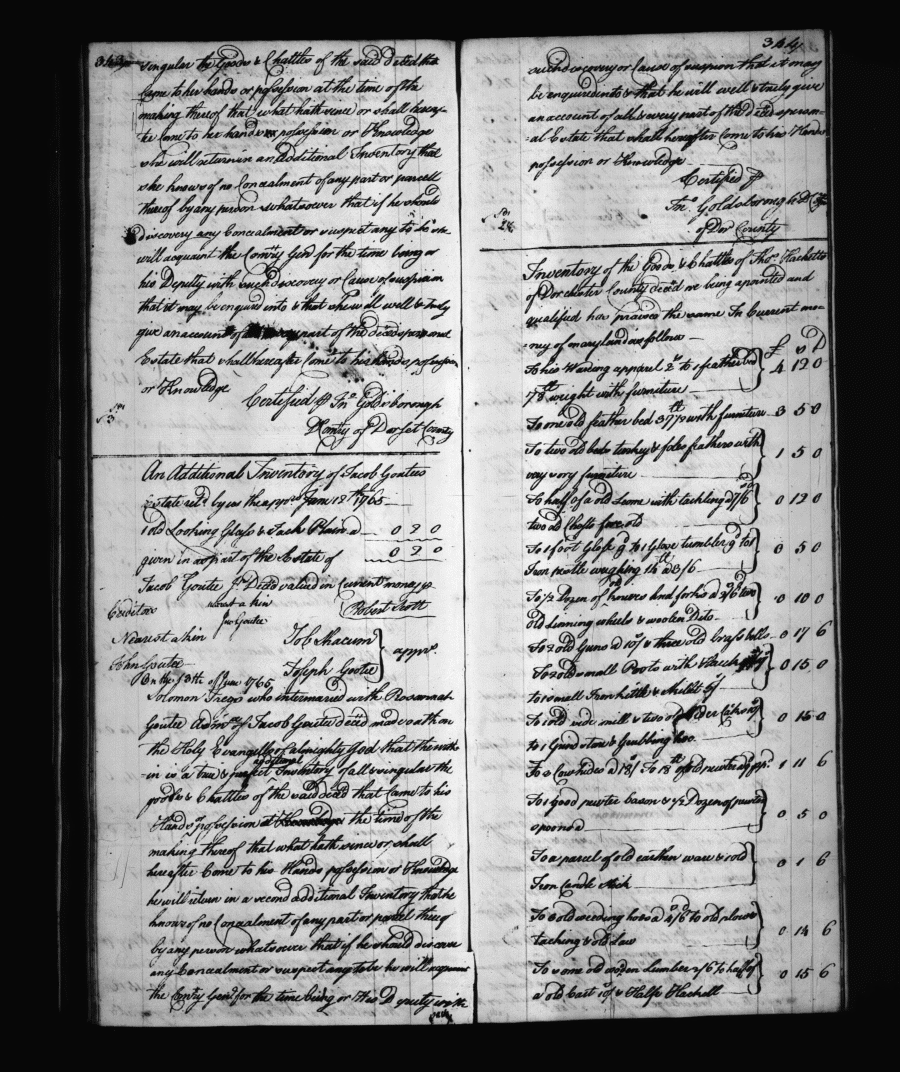 singular the Goods & Chattles of the said deced that
Came to her hands or possession at the time of the
making thereof that what hath since or shall hereaf-
ter come to her hands or possession or Knowledge
she will return in an additional Inventory that
she knows of no Concealment of any part or parcell
thereof by any person whatsoever that if she should
discovery any Concealment or suspect any to be she
will acquaint the Comry Genl for the time being or
his Deputy with such discovery or Cause of suspicion
that it may be enquired into & that she will well & truly
give an account of part of the deceds personal
Estate that shall hereafter Come to his hands possession
or Knowledge
Certified Jno Goldsborough
DComty of Dorset County
An Additional Inventory of Jacob Gouties
Estate by us the Jany 18th 1765
1 old Looking Glass & Jack Plain 0 2 0
0 2 0
given in as part of the Estate of
Jacob Goutee Decd valued in Current money
Creditor nearest a kin Robert Scott
Jno Goutee
Nearest a kin Job Macum
John Goutee apprs
Joseph Goutee
On the 18th of June 1765
Solomon Trego who intermaried with Rosannah
Goutee Admx of Jacob Goutee deced made oath on
the Holy Evangells of almighty God that the with-
in is a true & perfect additional Inventory of all & singular the
goods & Chattles of the said deced that Came to his
Hands or possession at the time of the
making thereof that what hath since or shall
hereafter Come to his Hands possession or Knowledge
he will return in a second additional Inventory that he
knows of no Concealment of any part or parcel thereof
by any person whatsoever that if he should discover
any Concealment or suspect any to be he will
the Comty Genl for the time being or His Deputy with
such
344
such discovery or Cause of suspicion that it may
be enquired into & that he will well & truly give
an account of all & every part of the deceds person-
al Estate that shall hereafter Come to his Hands
possession or Knowledge
Certified
Jno Goldsborough
of Dor County
Inventory of the Goods & Chattles of Thos Hacketts
of Dorchester County deced we being apointed and
qualifed hav praised the same In Current mo-
ney of maryland as follows
£ s D
To his Waring apparel to 1 feather bed 4 12 0
78 weight with furniture
To one old feather bed 37 with furniture 3 5 0
To two old beds turkey & foles feathers with 1 5 0
very sory furniture
To half of a old Seine with tackling 0 12 0
two old Chests
To 1 foot Glass to 1 Glass tumbler 0 5 0
Iron pestle weighing
To 1/2 Dozen of knives and forks two 0 10 0
old linning wheels & woolen Ditto
To 2 old Guns & three old brass kells 0 17 6
To 2 old small Poots with 0 15 0
to 1 small Iron kittle & skillit
To 1 old side mill & two old Sider Casks 0 15 0
to 1 Grindstone & Grubbing hoe
To 2 Cow hides To 18 of old pewter 1 11 6
To 1 good pewter bason & 1/2 Dozen of pewter 0 5 0
spoons
To a parcel of old earthen ware & 1 old 0 1 6
Iron Candle stick
To 3 old weeding hoes to old plows 0 14 6
taching & old Saw
To some old wooden lumber 2/6 to half of 0 15 6
a old Cart & Half a Hackell